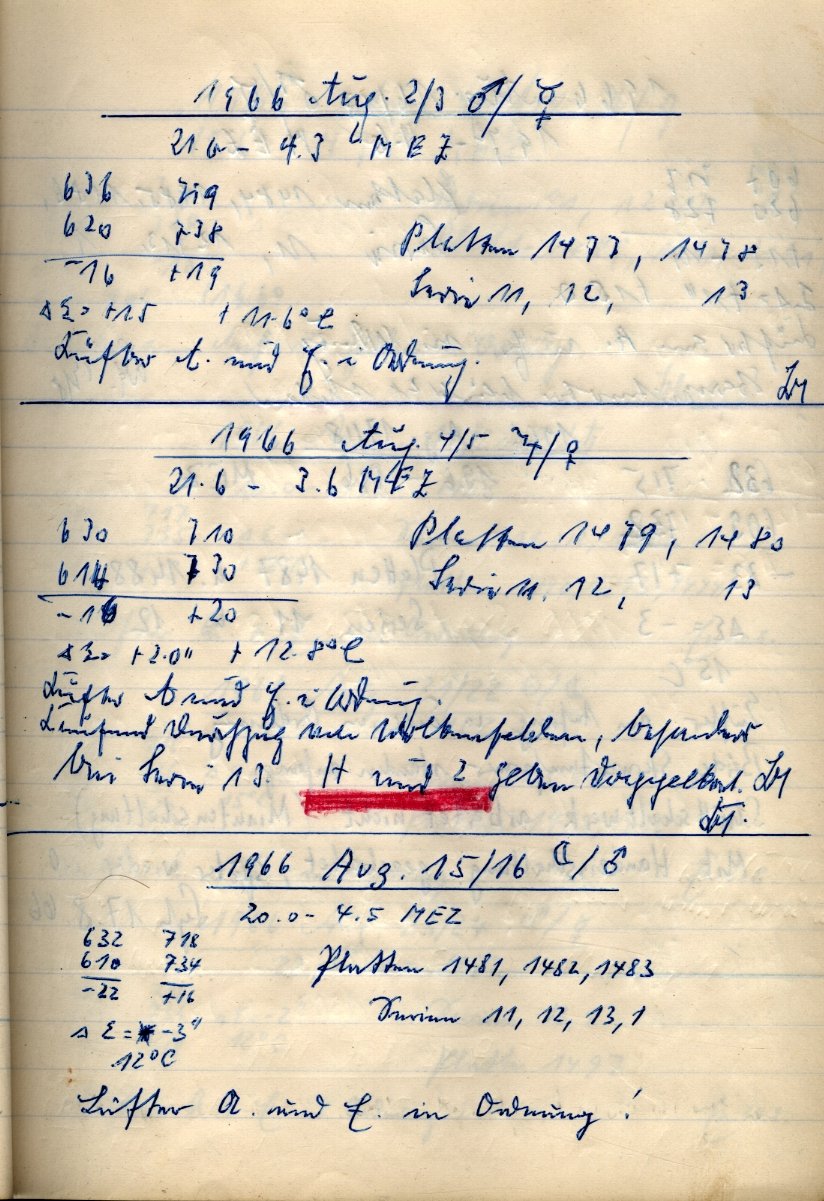 1966 Aug. 2/3 ♂/☿
21.0 – 4.3 MEZ
636 719
620 738
-16 +19
Platten 1477, 1478
Serie 11, 12, 13
Δ Σ = +15 + 11.6°C
Lüfter A. und E. i Ordnung.
1966 Aug. 4/5 ♃/♀
21.6 – 3.6 MEZ
630 710
614 730
-16 +20
Platten 1479, 1480
Serie 11, 12, 13
Δ Σ = +2.0" + 12.8°C
Lüfter A und E. i Ordnung.
Laufend Durchzug von Wolkenfeldern, besonders
bei Serie 13. H und 2 geben
1966 Aug. 15/16 ☾/♂
20.0 – 4.5 MEZ
632 718
610 734
-22 +16
Platten 1481, 1482, 1483
Serien 11, 12, 13, 1
Δ Σ = -3"
12°C
Lüfter A. und E. in Ordnung!